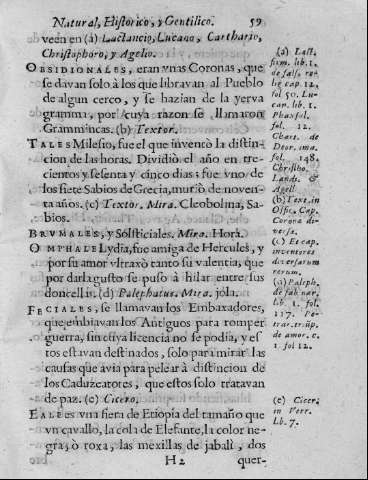 Natural, Historico, y Gentilico. 59
veen en (a) Lactancio, Lucano, Cartbario,
Christophoro, y Agelio.
OBSIDIONALES, eran vnas Coronas, que
se davan solo à los que libravan al Pueblo
de algun cerco, y se hazian de la yerva
gramma, por cuya razon se llamaron
Grammincas. (b) Textor.
TALES Milesio, fue el que inventò la distin-
cion de las horas. Dividiò el año en tre-
cientos y sesenta y cinco dias: fue vno de
los siete Sabios de Grecia, muriò de noven-
ta años. (c) Textor. Mira. Cleobolina, Sa-
bios.
BRVMALES, y Solsticiales. Mira. Hora.
OMPHALE Lydia, fue amiga de Hercules, y
por su amor vltraxò tanto su valentia, que
por darla gusto se puso à hilar entre sus
doncellas. (d) Palephatus. Mira. jola.
FECIALES, se llamavan los Embaxadores,
que embiavan los Antiguos para romper
guerra, sin cuya licencia no se podia, y es
tos estavan destinados, solo para mirar las
causas que avia para pelear à distincion de
los Caduzeatores, que estos solo tratavan
de paz. (e) Cicero.
EALES vna fiera de Etiopia del tamaño que
vn cavallo, la cola de Elefante, la color ne-
gra, ò roxa, las mexillas de jabali, dos
H2 quer-
(a) Lact.
firm. lib. 1.
de falso re-
lig cap. 12,
fol 50. Lu-
can. lib. 1.
Pharsal.
fol. 12.
Chart. de
Deor. ima.
fol. 148.
Christho.
Lands. &
Agell
(b) Text. in
Offic. Cap.
Corona di-
versa.
(c) Et cap.
inventores
diversarum
rerum.
(d) Paleph.
de fab nar.
lib. 1. fol.
117. Pe-
trar. triūp.
de amor. c.
1 fol 12.
(e) Cicer.
in Verr.
Lib. 7.